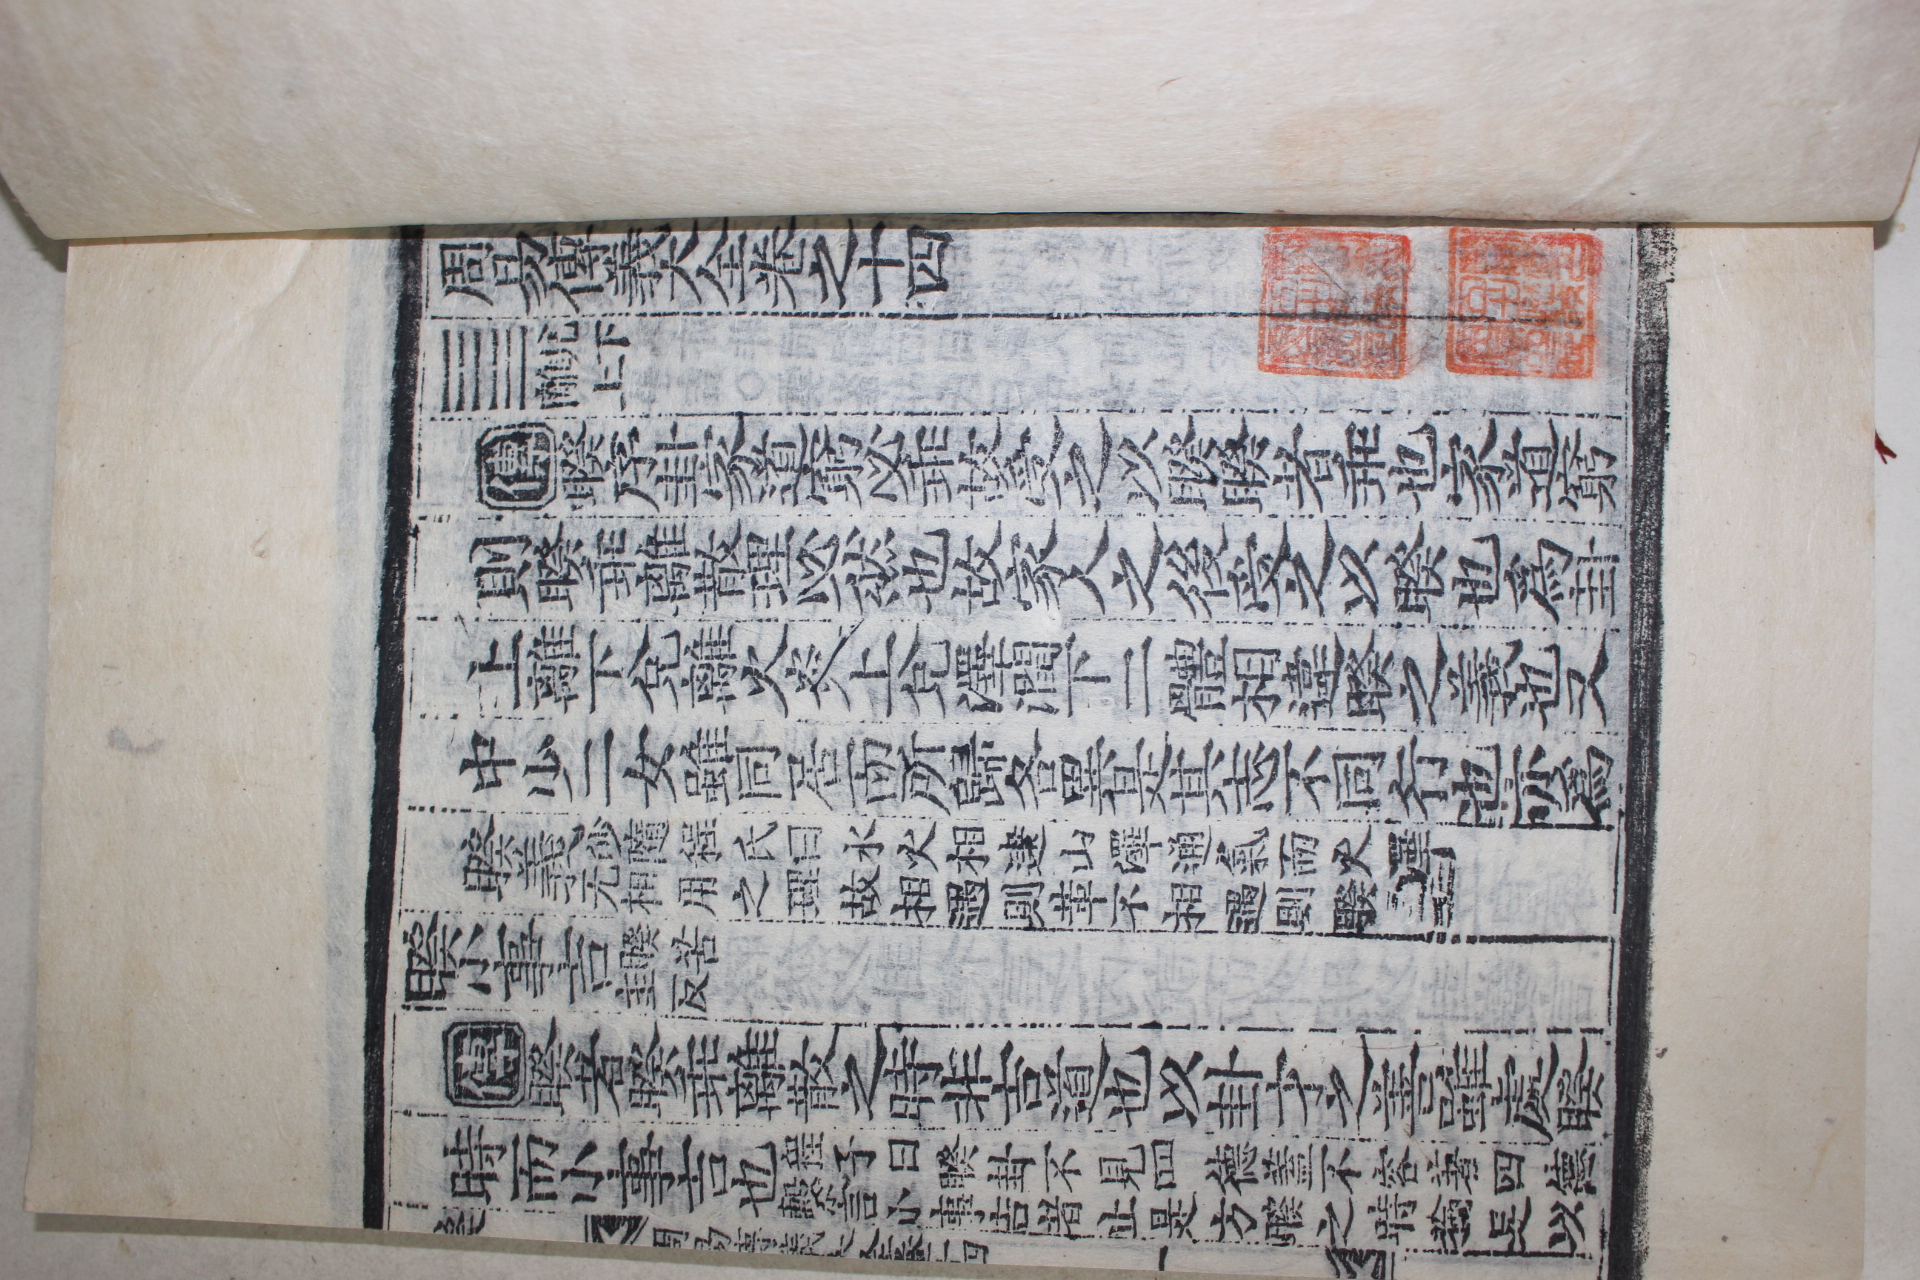 周易傳義大全卷之十四
兌下
離上
傳睽序卦家道窮必乖故受之以睽睽者乖也家道窮
則睽乖離散理必然也故家人之後受之以睽也爲卦
上離下兌離火炎上兌澤潤下二體相違睽之義也又
中少二女雖同居而所歸各異是其志不同行也亦爲
睽義
沙隨程氏曰水火相逮山澤通氣而火澤
无相用之理故相遇則革不相遇則睽
睽小事吉
睽苦
圭反
傳睽者睽乖離散之時非吉道也以卦才之善雖處睽
時而小事吉也
程子曰睽卦不見四德蓋不容著四德
繫言小事吉者止是方睽之時猶足以
周易傳義大全卷十四